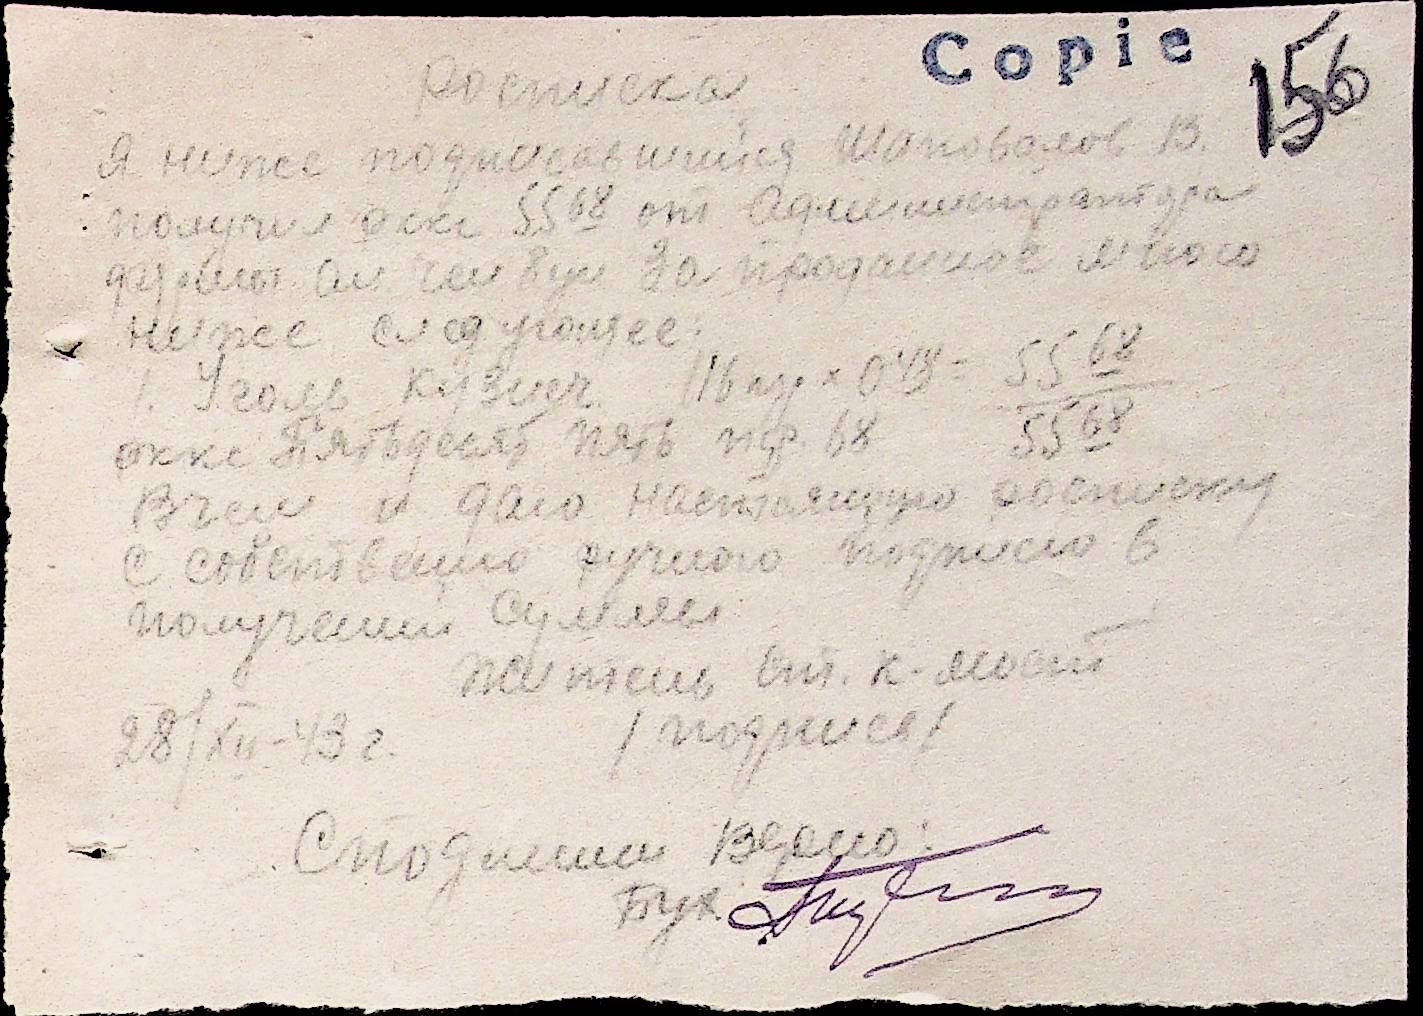 Copie
156
Росписка
Я ниже подписавшийся Шаповалов В.
получил оккс 55 68 от Администратора
фермы за проданное мною
ниже следующее:
1. Уголь кузнеч. 116 пуд × 0'48 = 55 68
оккс Пятьдесят пять пф. 68 55 68
В чем и даю настоящую росписку
с собственно ручною подписью в
получении суммы
Житель ст. К-мост
28/XII-43 г. /подпись/
С подлинным Верно:
Бух.